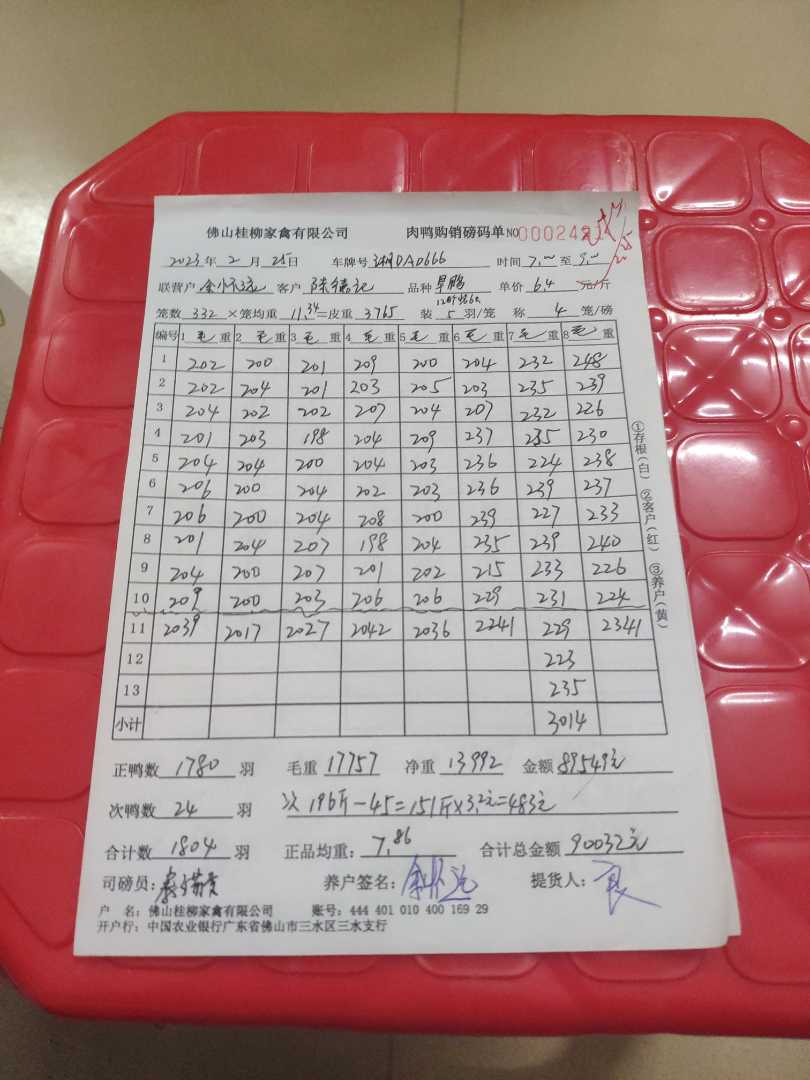 佛山桂柳家禽有限公司 肉鸭购销磅码单 NO 000242
2023年2月25日 车牌号 湘DAD666 时间 7,00 至 9,00
联营户 客户 陈德记 品种 单价 6.4 元/斤
笼数 332 ×笼均重 11.34 =皮重 3765 装 5 羽/笼 称 4 笼/磅
编号 1 毛 重 2 毛 重 3 毛 重 4 毛 重 5 毛 重 6 毛 重 7 毛 重 8 毛 重
1 202 200 201 209 200 204 232 248
2 202 204 201 203 205 203 235 239
3 204 202 202 207 204 207 232 226
4 201 203 198 204 209 237 235 230
5 204 204 200 204 203 236 224 238
6 206 200 204 202 203 236 239 237
7 206 200 204 208 200 239 227 233
8 201 204 207 198 204 235 239 240
9 204 200 207 201 202 215 233 226
10 209 200 203 206 206 229 231 224
11 2039 2017 2027 2042 2036 2241 229 2341
12 223
13 235
小计 3014
①存根(白) ②客户(红) ③养户(黄)
正鸭数 1780 羽 毛重 17757 净重 13992 金额 89549元
次鸭数 24 羽 次 196斤-45=151斤×3.2元=483元
合计数 1804 羽 正品均重: 7.86 合计总金额 90032元
司磅员: 养户签名: 提货人:
户 名: 佛山桂柳家禽有限公司 账号: 444 401 010 400 169 29
开户行: 中国农业银行广东省佛山市三水区三水支行